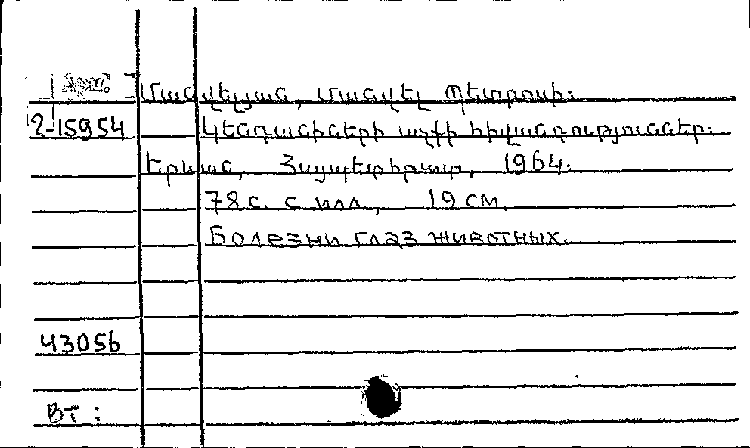 Մանվելյան, Մանվել Պետրոսի.
2-15954 Կենդանիների աչքի հիվանդություններ.
Երևան, Հայպետհրատ, 1964.
78 с. с илл., 19 см.
Болезни глаз животных.
43056
Вт :